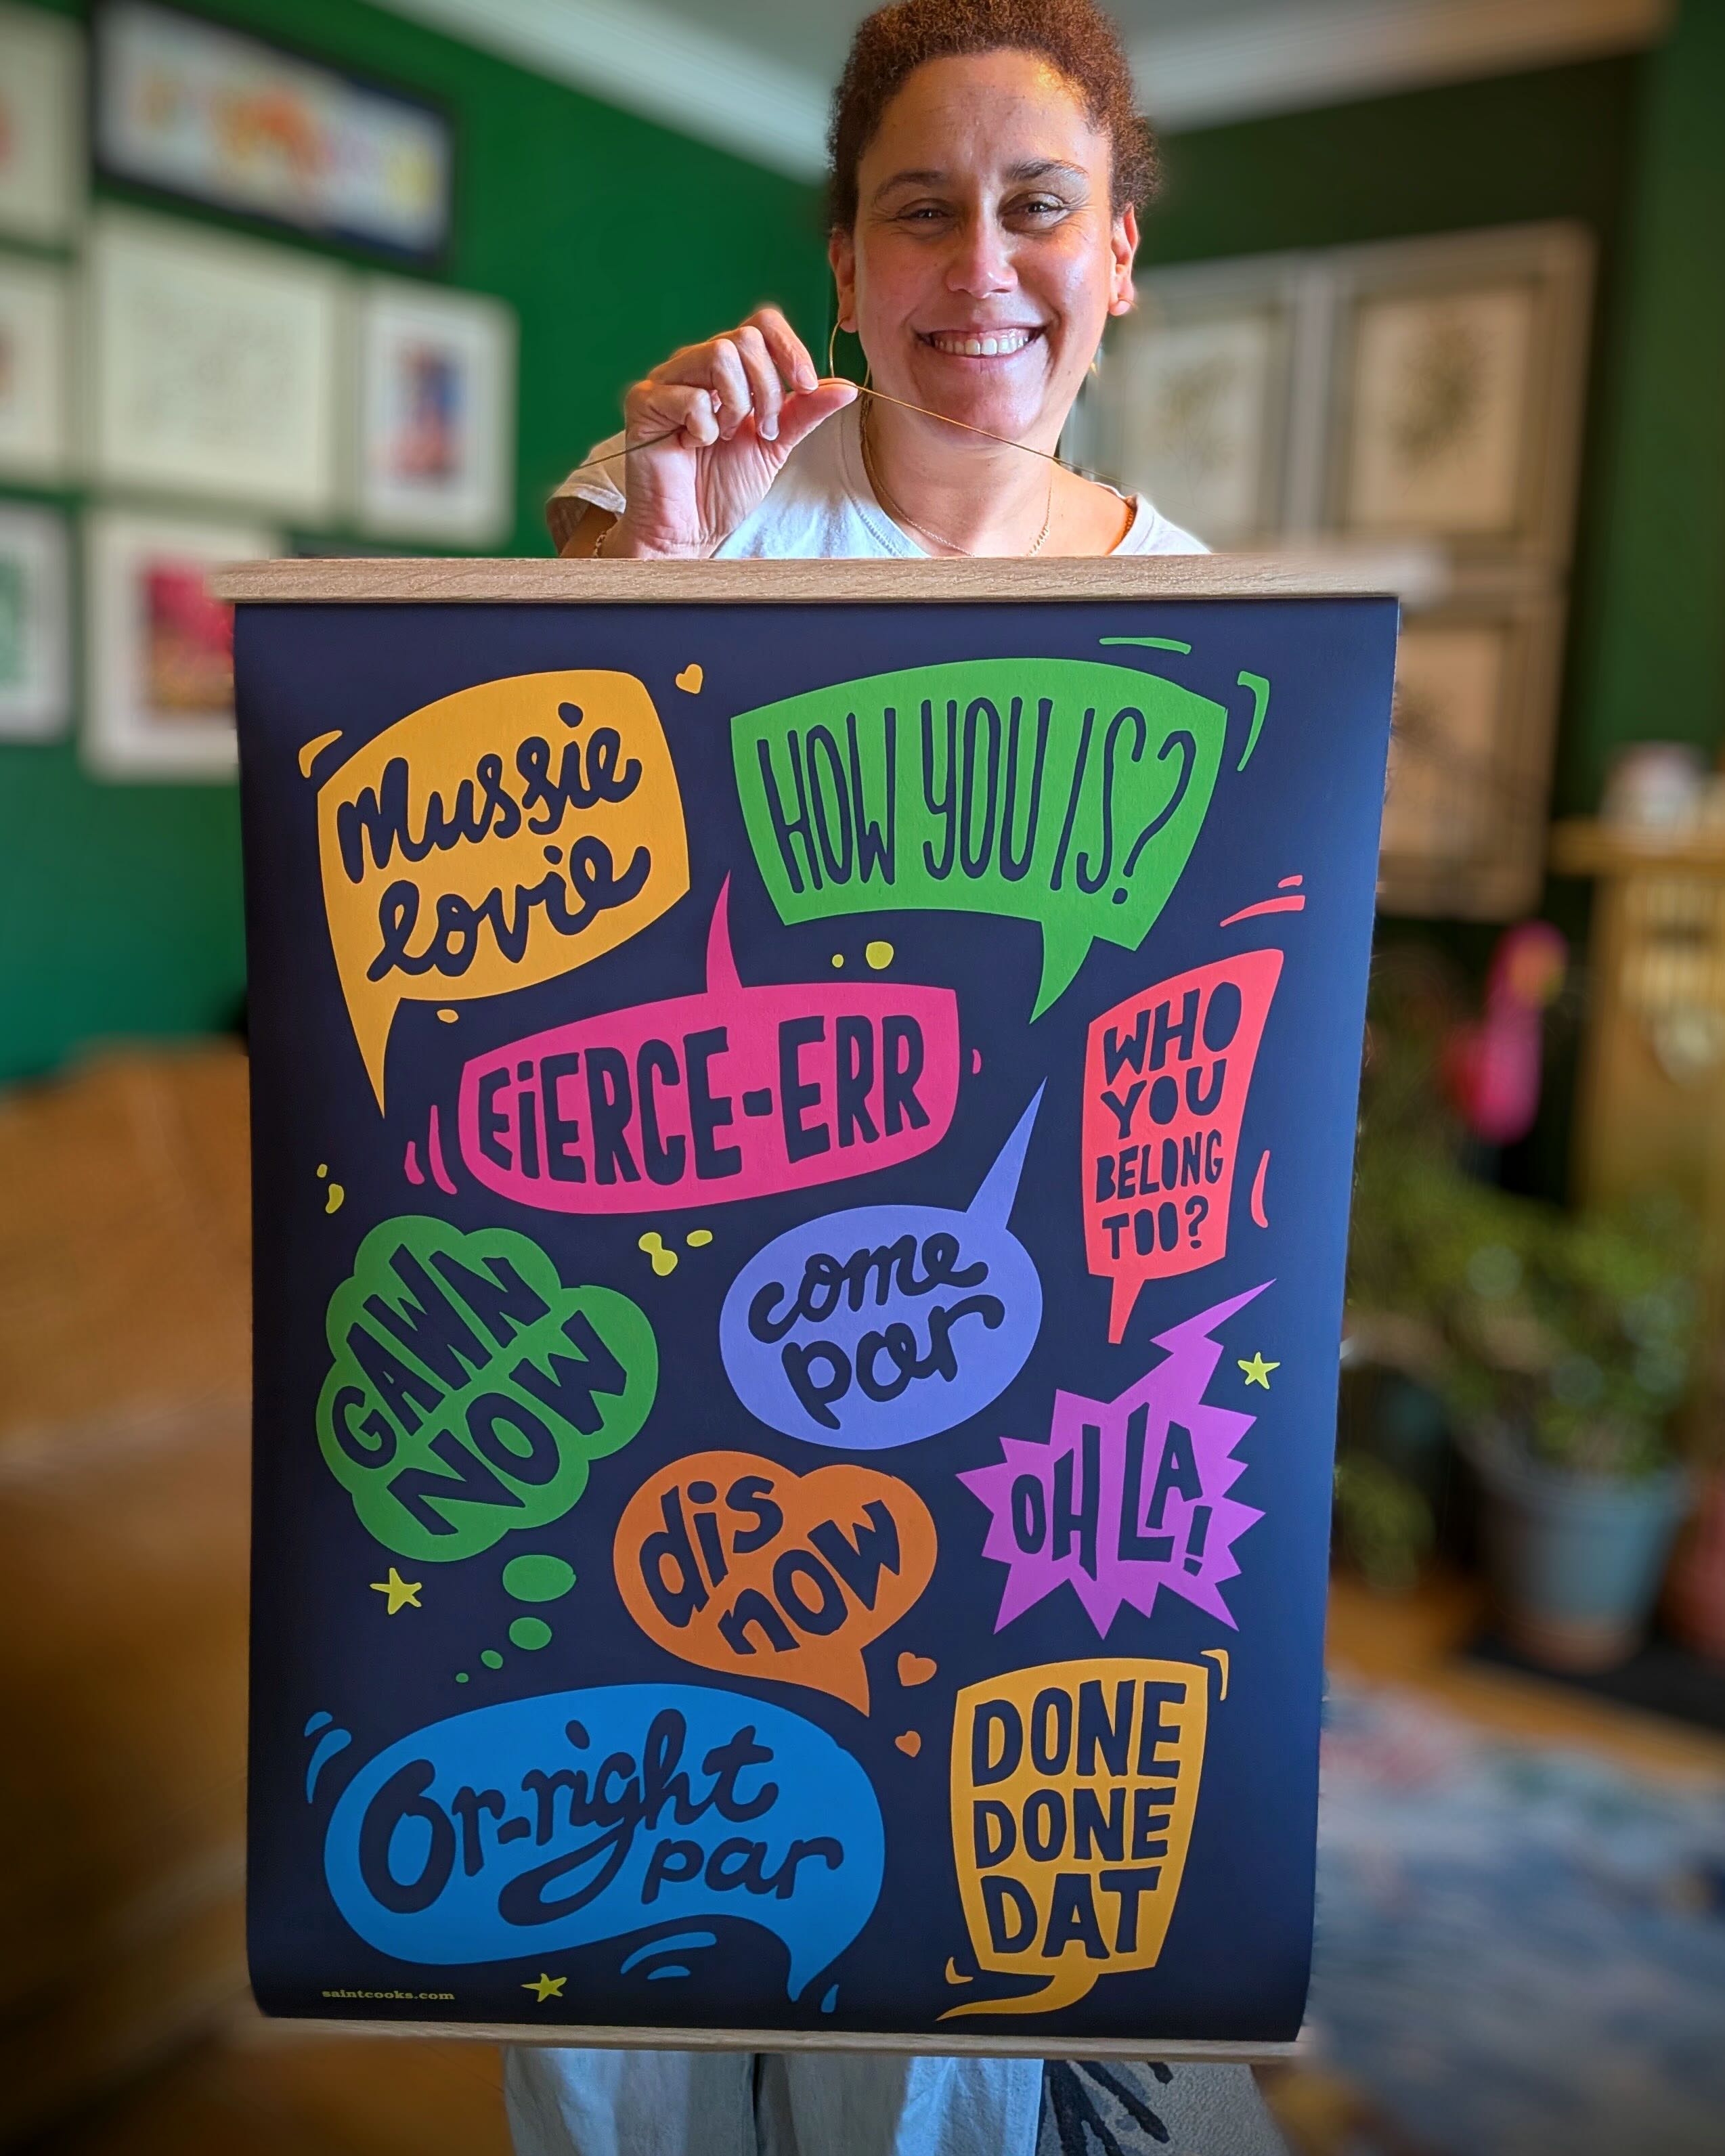 Mussie
lovie
HOW YOU IS?
FIERCE-ERR
WHO
YOU
BELONG
TOO?
GAWN
NOW
come
par
OH LA!
dis
now
Or-right
par
DONE
DONE
DAT
saintcooks.com